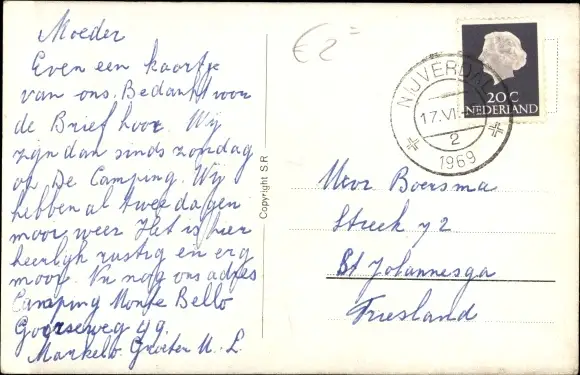 Moeder
Even een kaartje
van ons. Bedankt voor
de Brief hoor. Wij
zijn dan sinds zondag
op De Camping. Wij
hebben al twee dagen
moor weer Het is hier
heerlijk rustig en erg
moor. Nu nog ons adres
Camping Monte Bello
Goorseweg 49.
Markelo. Groeten U. L.
Copyright S.R
€2=
NIJVERDAL
17.VI
2
1969
20 C
NEDERLAND
Mevr Boersma
Streek 72
St Johannesga
Friesland